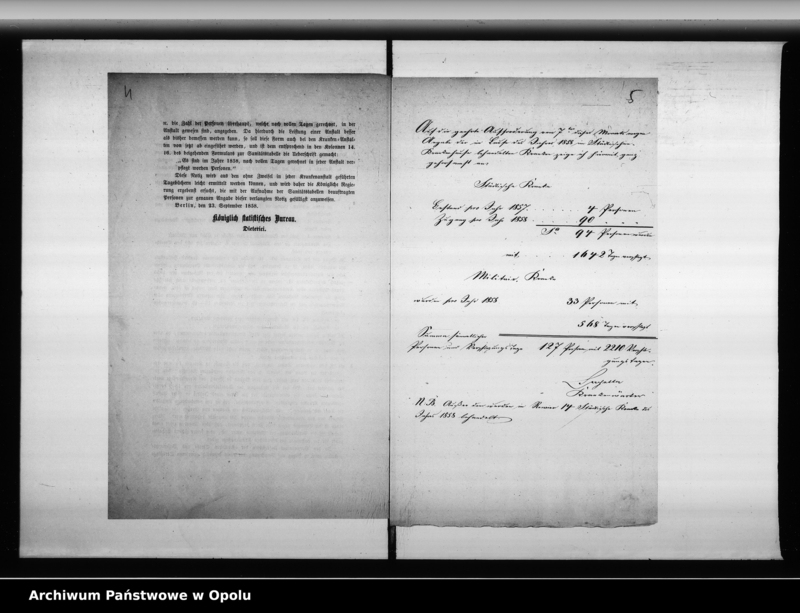 4
u. die Zahl der Personen überhaupt, welche nach vollen Tagen gerechnet, in der
Anstalt gewesen sind, angegeben. Da hierdurch die Leistung einer Anstalt besser
als bisher bemessen werden kann, so soll diese Form auch bei den Kranken-Anstal-
ten von jetzt ab eingeführt werden, und ist dem entsprechend in den Kolonnen 14.
16. des beigehenden Formulars zur Sanitätstabelle die Ueberschrift gemacht:
„Es sind im Jahre 1858, nach vollen Tagen gerechnet in jeder Anstalt ver-
pflegt worden Personen."
Diese Notiz wird aus den ohne Zweifel in jeder Krankenanstalt geführten
Tagebüchern leicht ermittelt werden können, und wird daher die Königliche Regie-
rung ergebenst ersucht, die mit der Aufnahme der Sanitätstabellen beauftragten
Personen zur genauen Angabe dieser verlangten Notiz gefälligst anzuweisen.
Berlin, den 23. September 1858.
Königlich statistisches Bureau.
Dieterici.
5
Auf die geehrte Aufforderung vom 7 dieses Monats wegen
Angabe der im Laufe des Jahres 1858 im Städtischen
Krankenhause behandelten Kranken zeige ich hiermit ganz
gehorsamst an:
Städtische Kranke
Bestand pro Jahr 1857 . . . . . 4 Personen
Zugang pro Jahr 1858 . . . . . 90 . .
Sa 94 Personen wurden
mit . . . . 1642 Tagen verpflegt.
Militair Kranke
wurden pro Jahr 1858 33 Personen mit
568 Tagen verpflegt
Summa sämmtlicher
Personen und Verpflegungstage 127 Person mit 2210 Verpfle-
gungstagen.
Krankenwärter
N.B. Außer den wurden 14 Städtische Kranke des
Jahres 1858 behandelt
Archiwum Państwowe w Opolu